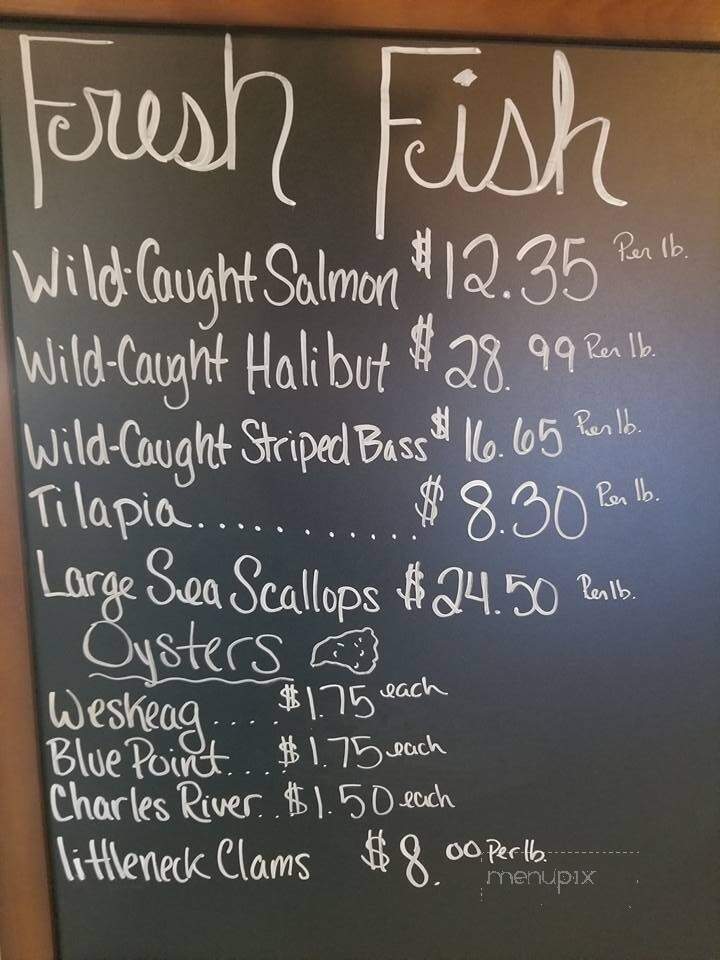 Fresh Fish
Wild-Caught Salmon $12.35 Per lb.
Wild-Caught Halibut $28.99 Per lb.
Wild-Caught Striped Bass $16.65 Per lb.
Tilapia............. $8.30 Per lb.
Large Sea Scallops $24.50 Per lb.
Oysters
Weskeag.... $1.75 each
Blue Point... $1.75 each
Charles River.. $1.50 each
littleneck Clams $8.00 Per lb.
menupix